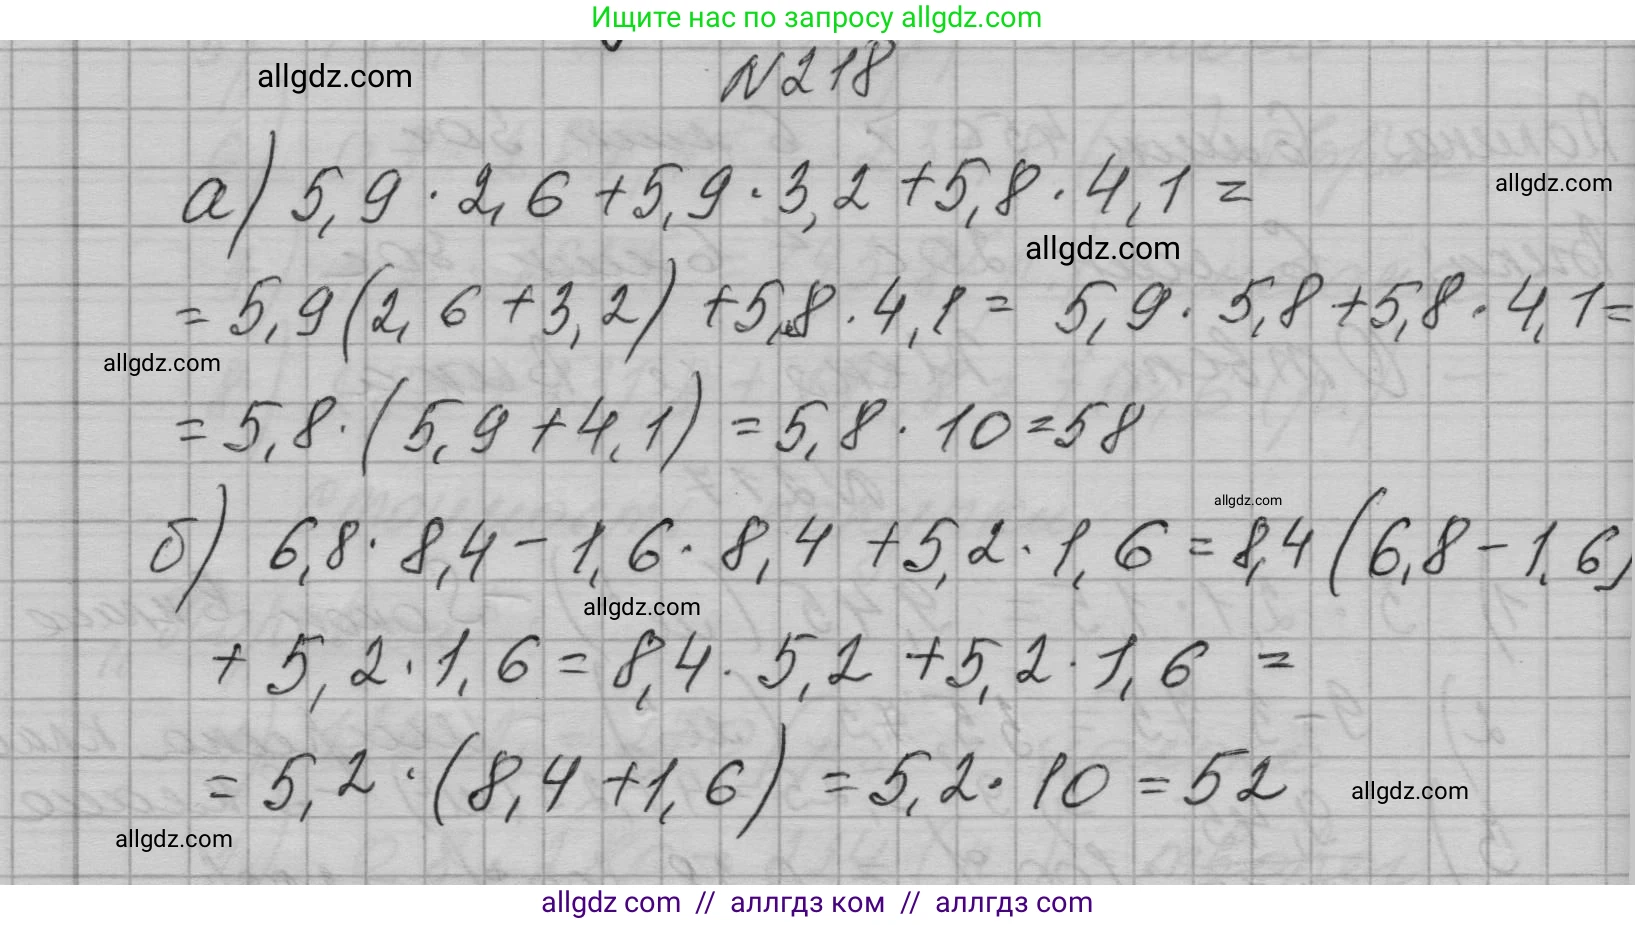 Ищите нас по запросу allgdz.com
allgdz.com
№218
а) 5,9 · 2,6 + 5,9 · 3,2 + 5,8 · 4,1 =
allgdz.com
allgdz.com
= 5,9 (2,6 + 3,2) + 5,8 · 4,1 = 5,9 · 5,8 + 5,8 · 4,1 =
allgdz.com
= 5,8 · (5,9 + 4,1) = 5,8 · 10 = 58
allgdz.com
б) 6,8 · 8,4 - 1,6 · 8,4 + 5,2 · 1,6 = 8,4 (6,8 - 1,6)
allgdz.com
+ 5,2 · 1,6 = 8,4 · 5,2 + 5,2 · 1,6 =
= 5,2 · (8,4 + 1,6) = 5,2 · 10 = 52
allgdz.com
allgdz.com
allgdz com // аллгдз ком // аллгдз com